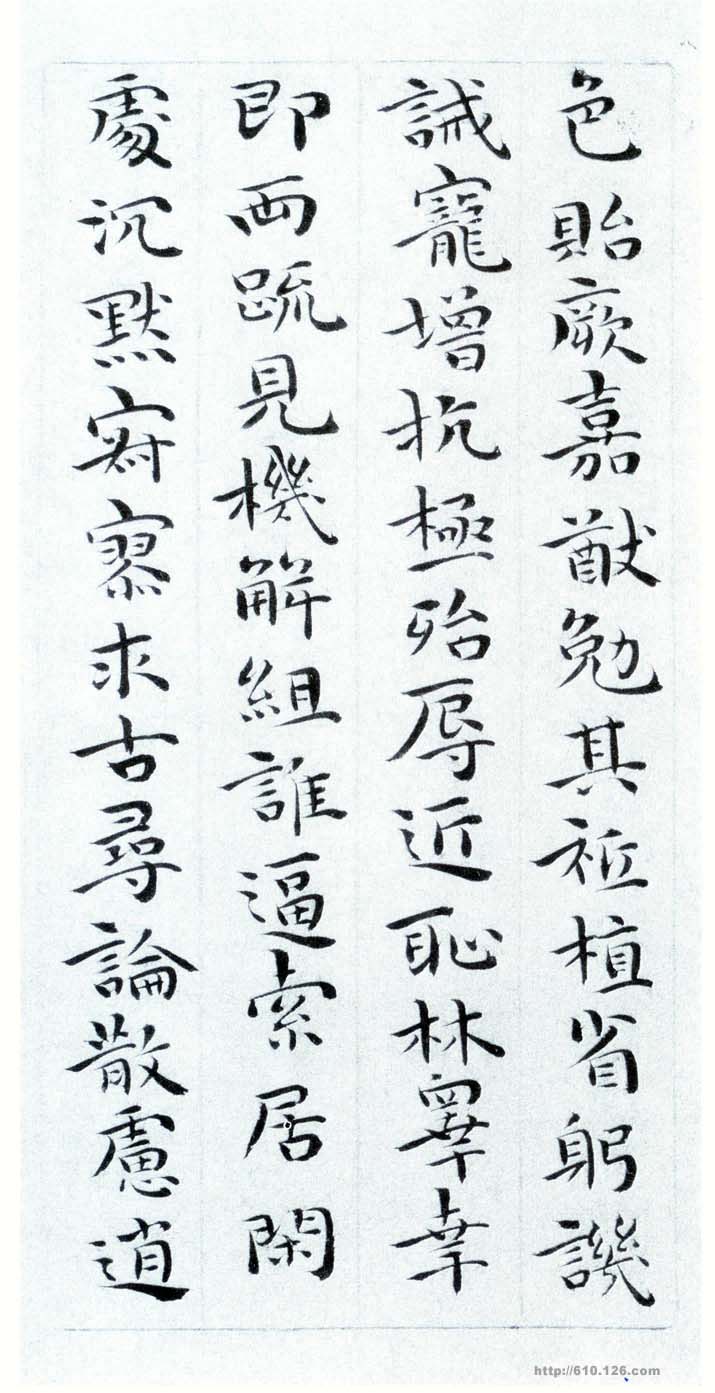 色貽厥嘉猷勉其祗植省躬譏
誡寵增抗極殆辱近恥林睾幸
即兩疏見機解組誰逼索居閑
處沉默寂寥求古尋論散慮逍
http://610.126.com